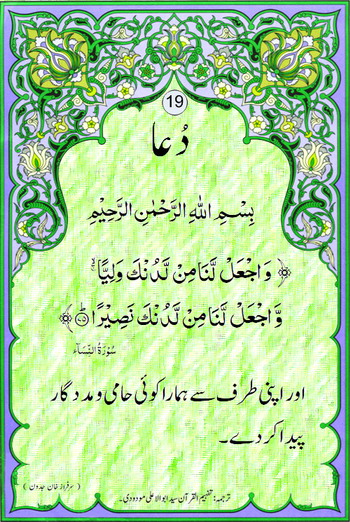 19
دُعا
بِسْمِ اللهِ الرَّحْمٰنِ الرَّحِيْمِ
﴿ وَاجْعَلْ لَّنَا مِنْ لَّدُنْكَ وَلِيًّا ۙ
وَّاجْعَلْ لَّنَا مِنْ لَّدُنْكَ نَصِيْرًا ؕ ﴿۷۵﴾ ﴾
سُوْرَةُ النِّسَآء
اور اپنی طرف سے ہمارا کوئی حامی و مددگار
پیدا کر دے۔
( سرفراز خان جدون )
ترجمہ: تفہیم القرآن سید ابوالاعلیٰ مودودی۔